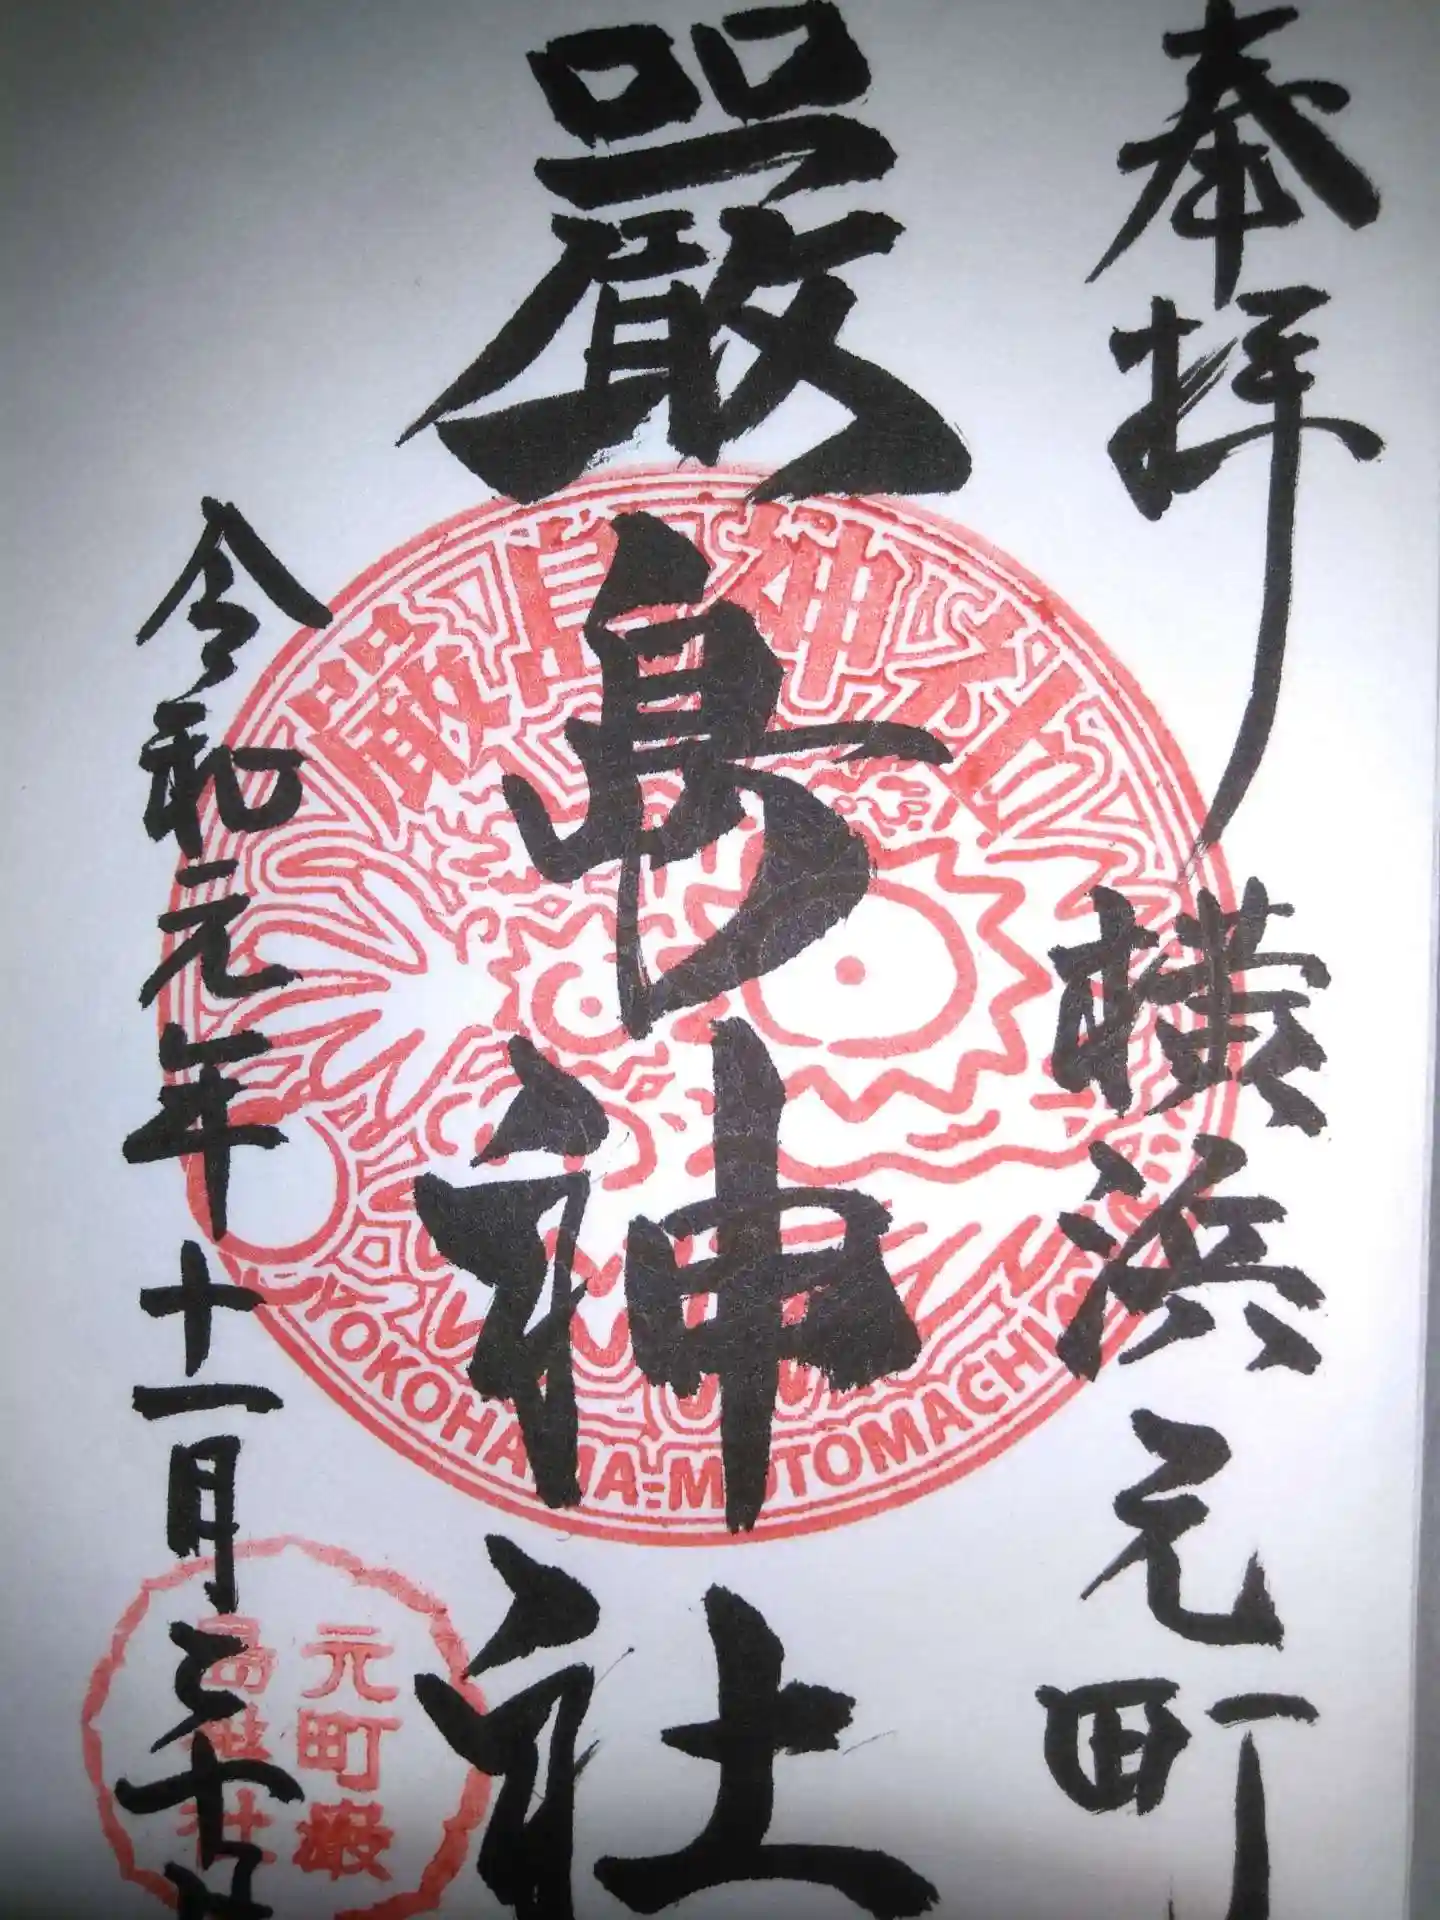 奉拝
横浜元町
嚴島神社
令和元年十一月三十日
嚴島神社
YOKOHAMA-MOTOMACHI
元町嚴
島神社